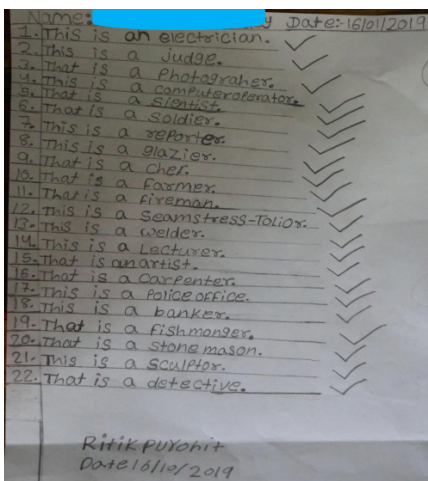 Name: y Date:-16/01/2019
1. This is an electrician.
2. This is a judge.
3. That is a Photograher.
4. This is a computeroperator.
5. That is a Sientist.
6. That is a Soldier.
7. This is a reporter.
8. This is a glazier.
9. That is a chef.
10. That is a Farmer.
11. That is a fireman.
12. This is a Seamstress-Tolior.
13- This is a welder.
14. This is a Lecturer.
15-That is an artist.
16. That is a Carpenter.
17- This is a Police office.
18. This is a banker.
19- That is a fishmonger.
20- That is a Stone mason.
21- This is a Sculptor.
22. That is a detective.
Ritik purohit
Date 16/10/2019